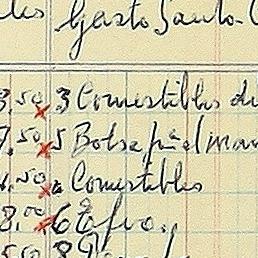 les Gasto Santo
3,50 3 Comestibles di
,50 5 Bolsa pª el man
,50 Comestibles
8,00 6
50 8